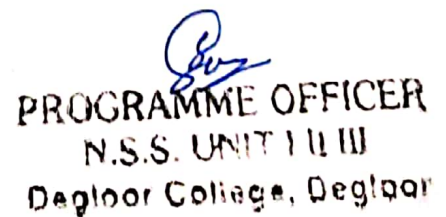 PROGRAMME OFFICER
N.S.S. UNIT I II III
Degloor College, Degloor